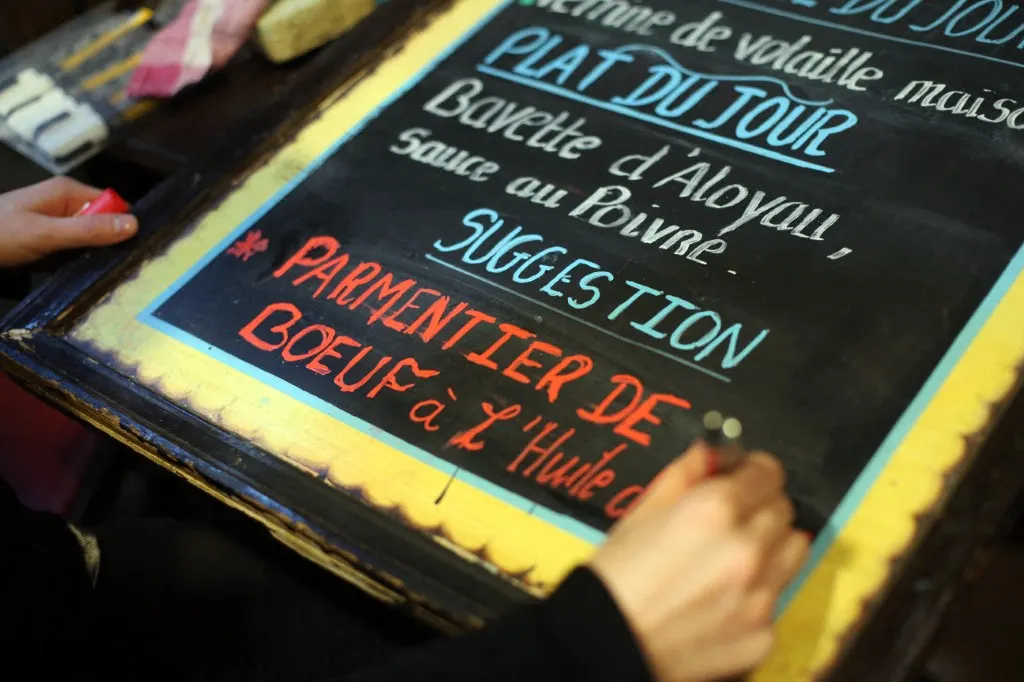 DU JOUR
de volaille maiso
PLAT DU JOUR
Bavette d'Aloyau,
Sauce au Poivre.
SUGGESTION
* PARMENTIER DE
BOEUF à L'Huile d